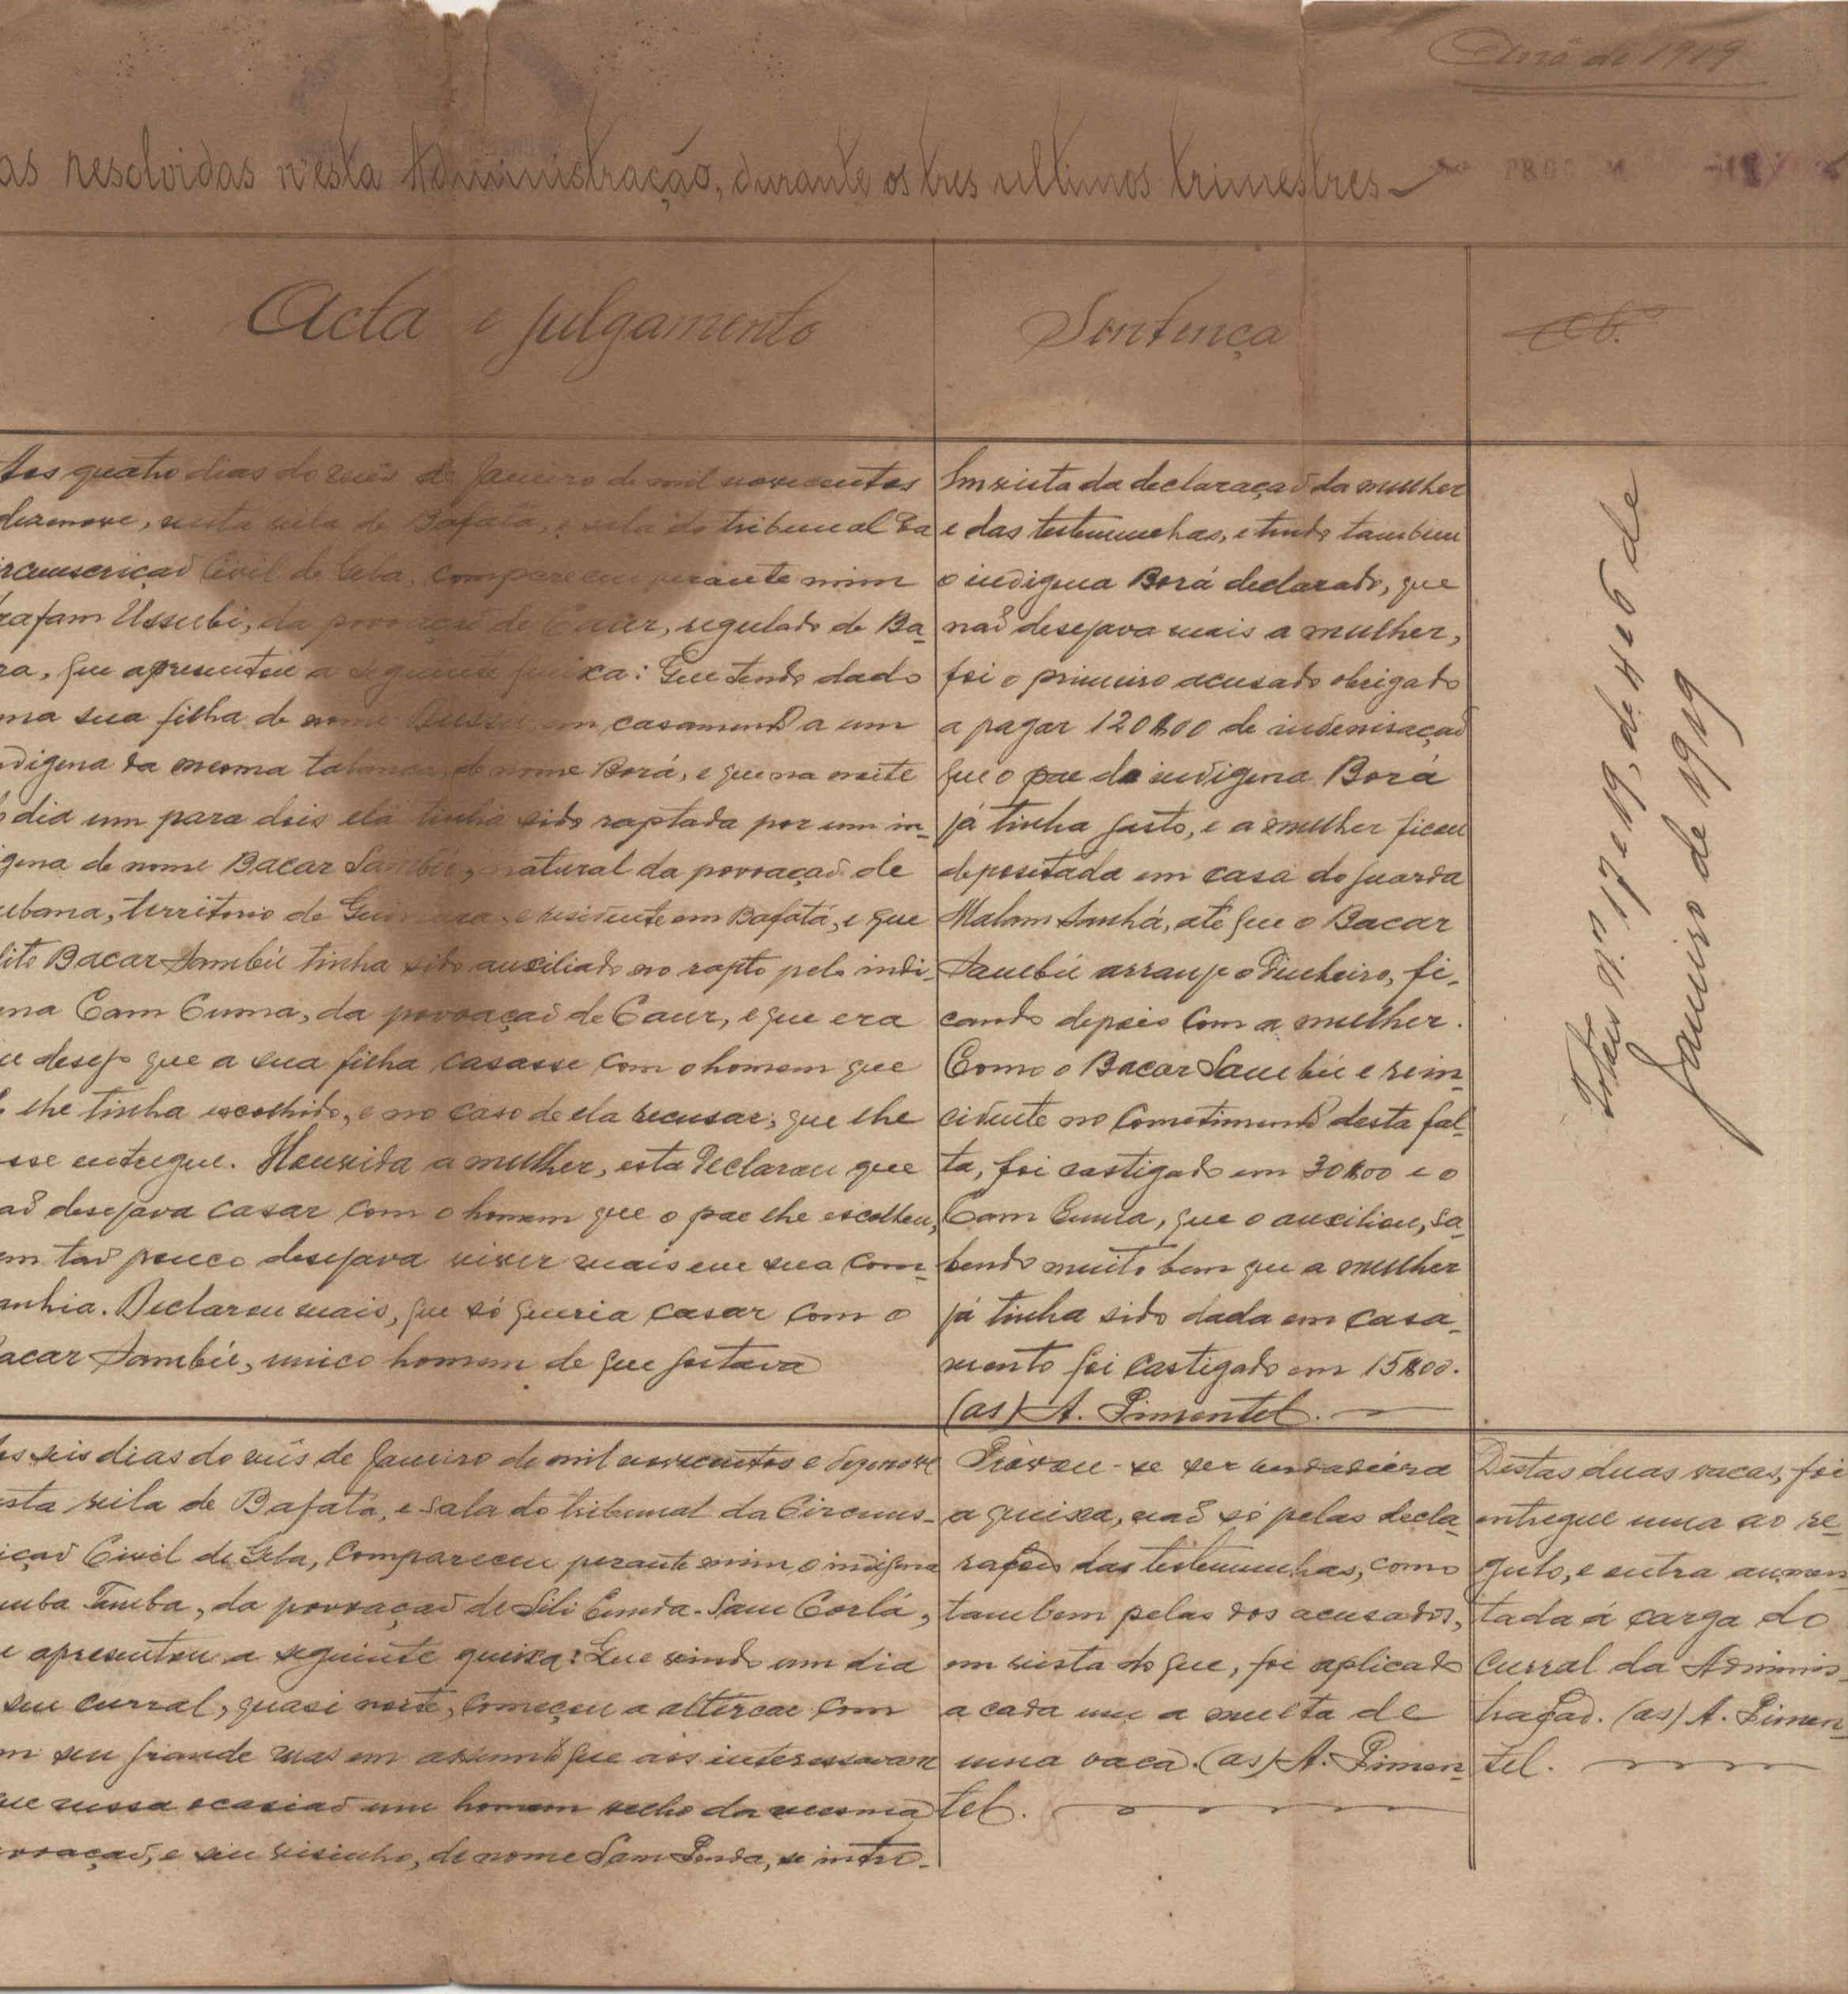 Ano de 1919
as resolvidas n'esta Administração, durante os tres ultimos trimestres
Acta e julgamento
Sentença
Aos quatro dias do mês de Janeiro de mil novecentos
dezenove, nesta vila de Bafatá, e sala do tribunal da
ircunscriçaõ Civil de Geba, compareceu perante mim
rafam Ussubi, da povoaçaõ de Caur, regulado de Ba-
ra, que apresentou a seguinte queixa: Que tendo dado
ma sua filha de nome em casamento a um
ndigena da mesma tabanca, de nome Borá, e que na noite
dia um para dois ela tinha sido raptada por um in-
gena de nome Bacar Sambú, natural da povoaçaõ de
ubana, territorio de e residente em Bafatá, e que
dito Bacar Sambú tinha sido auxiliado no rapto pelo indi-
na Cam Cuma, da povoaçaõ de Caur, e que era
u desejo que a sua filha casasse com o homem que
lhe tinha escolhido, e no caso de ela recusar, que lhe
sse entregue. Houvida a mulher, esta declarou que
aõ desejava casar com o homem que o pae lhe escolheu,
em taõ pouco desejava viver mais em sua com-
anhia. Declarou mais, que só queria casar com o
acar Sambú, unico homem de que gostava
Em vista da declaraçaõ da mulher
e das testemunhas, e tendo tambem
o indigena Borá declarado, que
naõ desejava mais a mulher,
foi o primeiro acusado obrigado
a pagar 120$00 de indenisaçaõ
que o pae do indigena Borá
já tinha gasto, e a mulher ficou
depositada em casa do guarda
Malam Sanhá, até que o Bacar
Sambú arranje o dinheiro, fi-
cando depois com a mulher.
Como o Bacar Sambú e rein-
cidente no cometimento desta fal-
ta, foi castigado em 30$00 e o
Cam Cuma, que o auxiliou, sa-
bendo muito bem que a mulher
já tinha sido dada em casa-
mento foi castigado em 15$00.
(as) A. Pimentel.
Notas N.os 17 e 19, de 4 e 6 de
Janeiro de 1919
os seis dias do mês de Janeiro de mil novecentos e dezenove
esta vila de Bafatá, e sala do tribunal da Circuns-
içaõ Civil de Geba, compareceu perante mim, o indigena
umba Tamba, da povoaçaõ de Sili Cunda-Sam Corlá,
e apresentou a seguinte queixa: Que vindo um dia
seu curral, quasi noite, começou a altercar com
m seu grande mas em assunto que aos interessavam
que nessa ocasiaõ um homem velho da mesma
ovoaçaõ, e seu visinho, de nome Sam Penda, se intro-
Provou-se ser verdadeira
a queixa, naõ só pelas decla-
rações das testemunhas, como
tambem pelas dos acusados,
em vista do que, foi aplicado
a cada um a multa de
uma vaca. (as) A. Pimen-
tel.
Destas duas vacas, foi
entregue uma ao re-
gulo, e outra aumen-
tada á carga do
curral da Adminis-
traçaõ. (as) A. Pimen-
tel.